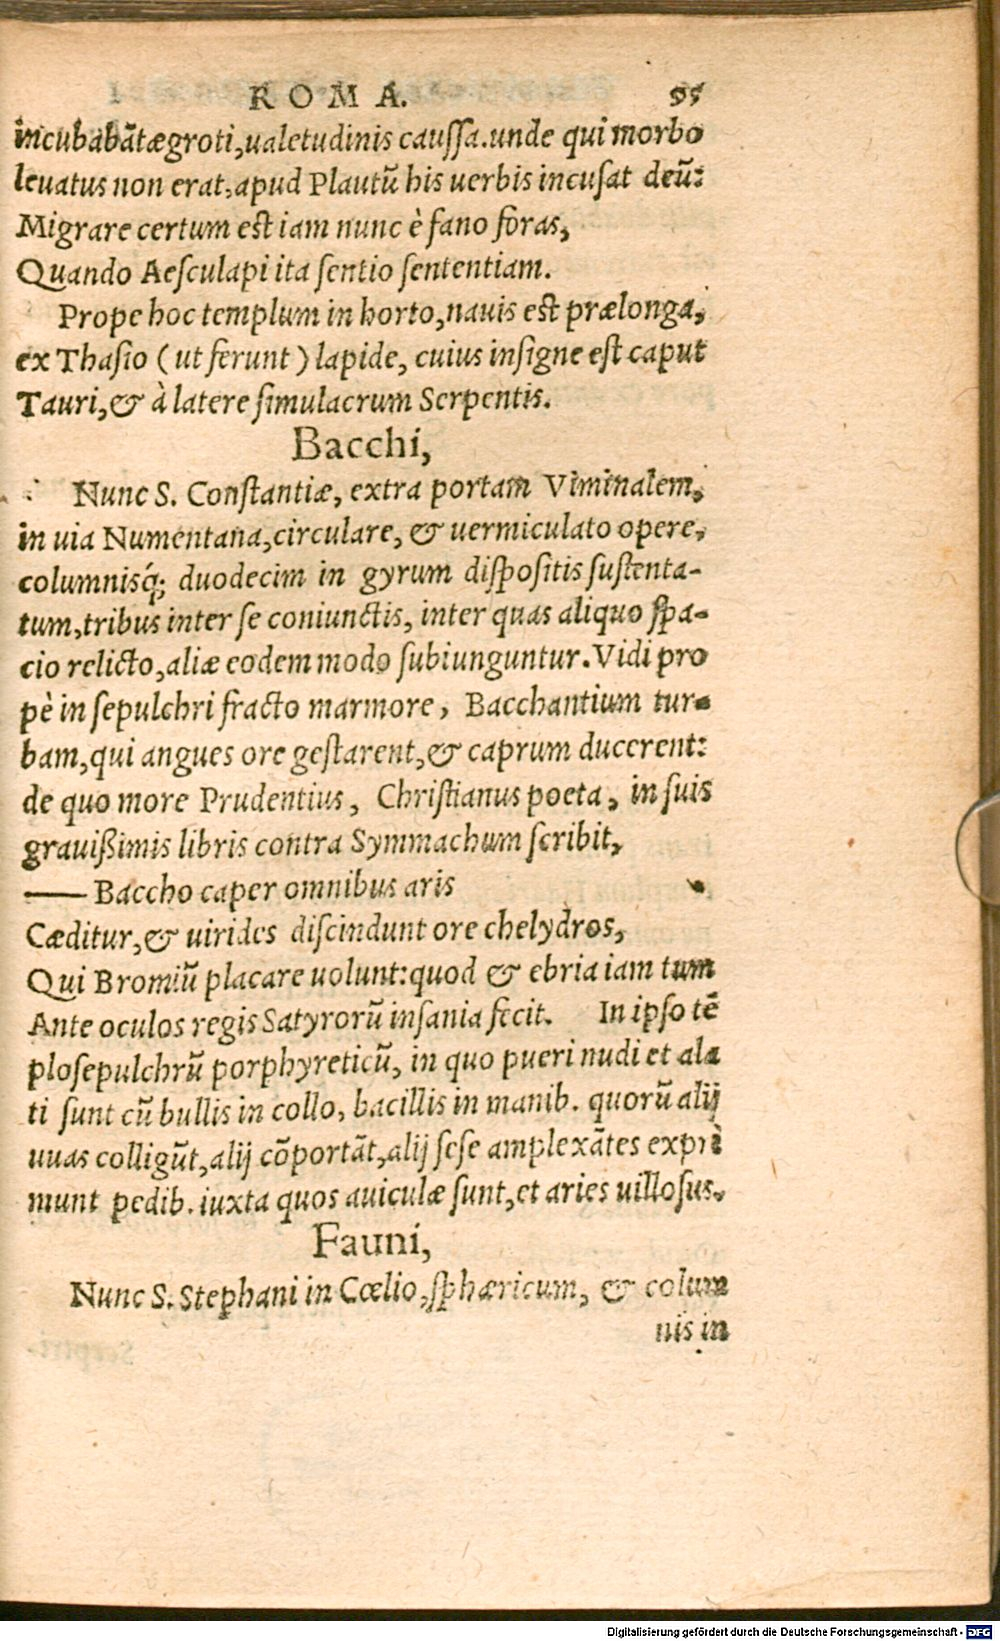 ROMA. 95
incubabāt ægroti, ualetudinis caussa. unde qui morbo
leuatus non erat, apud Plautū his uerbis incusat deū:
Migrare certum est iam nunc è fano foras,
Quando Aesculapi ita sentio sententiam.
Prope hoc templum in horto, nauis est prælonga,
ex Thasio (ut ferunt) lapide, cuius insigne est caput
Tauri, & à latere simulacrum Serpentis.
Bacchi,
Nunc S. Constantiæ, extra portam Viminalem,
in uia Numentana, circulare, & uermiculato opere,
columnisq́; duodecim in gyrum dispositis sustenta-
tum, tribus inter se coniunctis, inter quas aliquo spa-
cio relicto, aliæ eodem modo subiunguntur. Vidi pro
pè in sepulchri fracto marmore, Bacchantium tur-
bam, qui angues ore gestarent, & caprum ducerent:
de quo more Prudentius, Christianus poeta, in suis
grauißimis libris contra Symmachum scribit,
—— Baccho caper omnibus aris
Cæditur, & uirides discindunt ore chelydros,
Qui Bromiū placare uolunt: quod & ebria iam tum
Ante oculos regis Satyrorū insania fecit. In ipso tē
plo sepulchrū porphyreticū, in quo pueri nudi et ala
ti sunt cū bullis in collo, bacillis in manib. quorū alij
uuas colligūt, alij cōportāt, alij sese amplexātes expri
munt pedib. iuxta quos auiculæ sunt, et aries uillosus.
Fauni,
Nunc S. Stephani in Cœlio, sphæricum, & colum
nis in
Digitalisierung gefördert durch die Deutsche Forschungsgemeinschaft - DFG